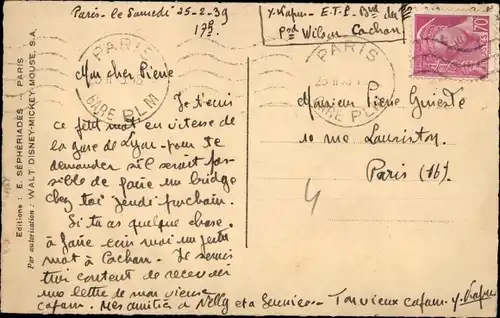 Paris - le Samedi 25-2-39
17h
E.T.P. Bd du
Psd Wilson Cachan
PARIS
GARE PLM
PARIS
GARE PLM
70
Mon cher Pierre
Je t'écris
ce petit mot en vitesse de
la gare de Lyon - pour te
demander s'il serait pos-
sible de faire un bridge
chez toi jeudi prochain.
Si tu as quelque chose
à faire envoi moi un petit
mot à Cachan. Je serais
très content de recevoir
une lettre de mon vieux
cafam. Mes amitiés à Nelly et a - Ton vieux cafam.
Monsieur Pierre
10 rue Lauriston
Paris (16)
4
Editions : E. SÉPHÉRIADÈS - PARIS
Par autorisation : WALT DISNEY-MICKEY-MOUSE, S.A.